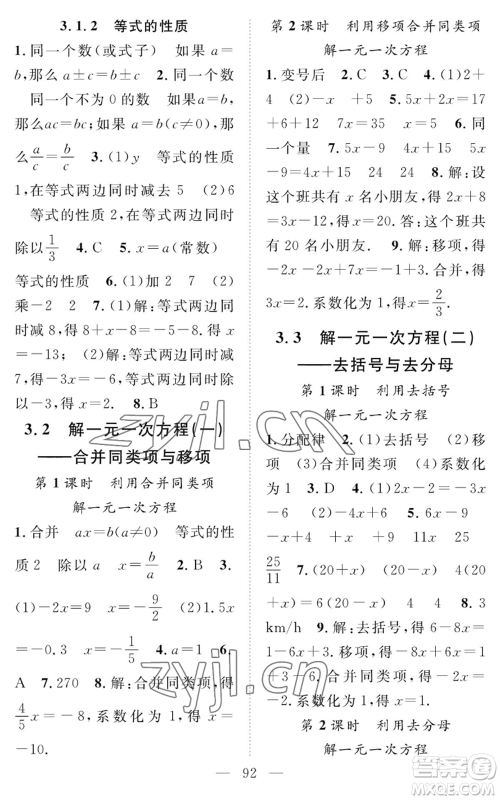 3.1.2　等式的性质
1.同一个数(或式子)　如果 a=
b,那么 a±c=b±c　2.同一个数
同一个不为 0 的数　如果 a=b,
那么 ac=bc;如果 a=b(c≠0),那
么 a/c = b/c　3.(1)y　等式的性质
1,在等式两边同时减去 5　(2)6
等式的性质 2,在等式两边同时
除以 1/3　4.C　5.x=a(常数)
等式的性质　6.(1)加 2　7　(2)
乘-2　2　7.(1)解:等式两边同时
减 8,得-x=13.等式两边同时乘
-1,得 x=-13;(2)解:等式两边同时
减 4,得-3x=-6.等式两边同时除
以-3,得 x=2.　8.B
3.2　解一元一次方程(一)
——合并同类项与移项
第 1 课时　利用合并同类项
解一元一次方程
1.合并　ax=b(a≠0)　等式的性
质 2　除以 a　x=b/a　2.B　3.A
(1)-2x=9　x=-9/2　(2)5x
=-1　x=-1/5　4.A　5.A　6.
A　7.270　8.解:合并同类项,得
4/5 x=-8,系数化为 1,得 x=
-10.
第 2 课时　利用移项合并同类项
解一元一次方程
1.变号后　2.C　3.A　4.(1)2+
4　(2)-x　+5　5.2x-5x=17
+6+12　7x　36　x=7　6.
同一个量　7.5x-9　4x+15　5x
-9=4x+15　24　8.解:设
这个班共有 x 名小朋友,得 2x+8=
3x-12,得 x=20.答:这个班共
有 20 名小朋友.　9.解:移项,得
6x-2x-x=-1+3.合并,得
3x=2.系数化为 1,得 x=2/3.
3.3　解一元一次方程(二)
——去括号与去分母
第 1 课时　利用去括号
解一元一次方程
1.分配律　2.(1)去括号　(2)移
项　(3)合并同类项　(4)系数化
为 1　3.A　4.D　5.2x-2-3x
-6=9　-x　+　x=　6.
25/11　7.(20+x)　(20-x)　4(20
+x)=6(20-x)　4　4　8.3
km/h　9.解:去括号,得 6-8x=
3-5x.移项,得-8x+5x=3-6.合
并,得-3x=-3.系数化为 1,得 x=1.
第 2 课时　利用去分母
解一元一次方程
92
zyjl.cn
zyjl.cn